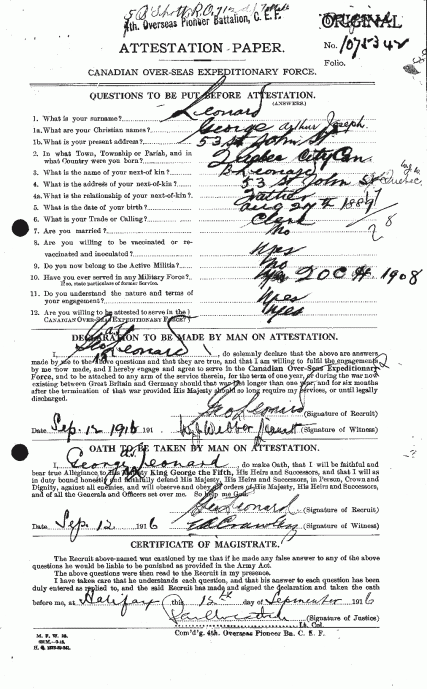 4th. Overseas Pioneer Battalion, C. E. F.
ORIGINAL
ATTESTATION PAPER.
No. 1075342
Folio.
CANADIAN OVER-SEAS EXPEDITIONARY FORCE.
QUESTIONS TO BE PUT BEFORE ATTESTATION.
(ANSWERS)
1. What is your surname? Leonard
1a. What are your Christian names? George Arthur Joseph
1b. What is your present address? 53 St John St
2. In what Town, Township or Parish, and in
what Country were you born? Quebec City Can
3. What is the name of your next-of-kin? B Leonard
4. What is the address of your next-of-kin? 53 St John St Quebec
4a. What is the relationship of your next-of-kin? Father
5. What is the date of your birth? Aug 27th 1889
6. What is your Trade or Calling? Clerk
7. Are you married? No
28
8. Are you willing to be vaccinated or re-
vaccinated and inoculated? Yes
9. Do you now belong to the Active Militia? No
10. Have you ever served in any Military Force? 1908
If so, state particulars of former Service.
11. Do you understand the nature and terms of
your engagement? Yes
12. Are you willing to be attested to serve in the
CANADIAN OVER-SEAS EXPEDITIONARY FORCE? Yes
DECLARATION TO BE MADE BY MAN ON ATTESTATION.
I, Geo Leonard, do solemnly declare that the above are answers
made by me to the above questions and that they are true, and that I am willing to fulfil the engagements
by me now made, and I hereby engage and agree to serve in the Canadian Over-Seas Expeditionary
Force, and to be attached to any arm of the service therein, for the term of one year, or during the war now
existing between Great Britain and Germany should that war last longer than one year, and for six months
after the termination of that war provided His Majesty should so long require my services, or until legally
discharged.
Geo Leonard (Signature of Recruit)
Date Sep. 12 1916 Webber (Signature of Witness)
OATH TO BE TAKEN BY MAN ON ATTESTATION.
I, George Leonard, do make Oath, that I will be faithful and
bear true Allegiance to His Majesty King George the Fifth, His Heirs and Successors, and that I will as
in duty bound honestly and faithfully defend His Majesty, His Heirs and Successors, in Person, Crown and
Dignity, against all enemies, and will observe and obey all orders of His Majesty, His Heirs and Successors,
and of all the Generals and Officers set over me. So help me God.
Geo Leonard (Signature of Recruit)
Date Sep. 12 1916 (Signature of Witness)
CERTIFICATE OF MAGISTRATE.
The Recruit above-named was cautioned by me that if he made any false answer to any of the above
questions he would be liable to be punished as provided in the Army Act.
The above questions were then read to the Recruit in my presence.
I have taken care that he understands each question, and that his answer to each question has been
duly entered as replied to, and the said Recruit has made and signed the declaration and taken the oath
before me, at Halifax this 12th day of September 1916
(Signature of Justice)
Lt. Col.
Com'd'g. 4th. Overseas Pioneer Bn. C. E. F.
M. F. W. 23.